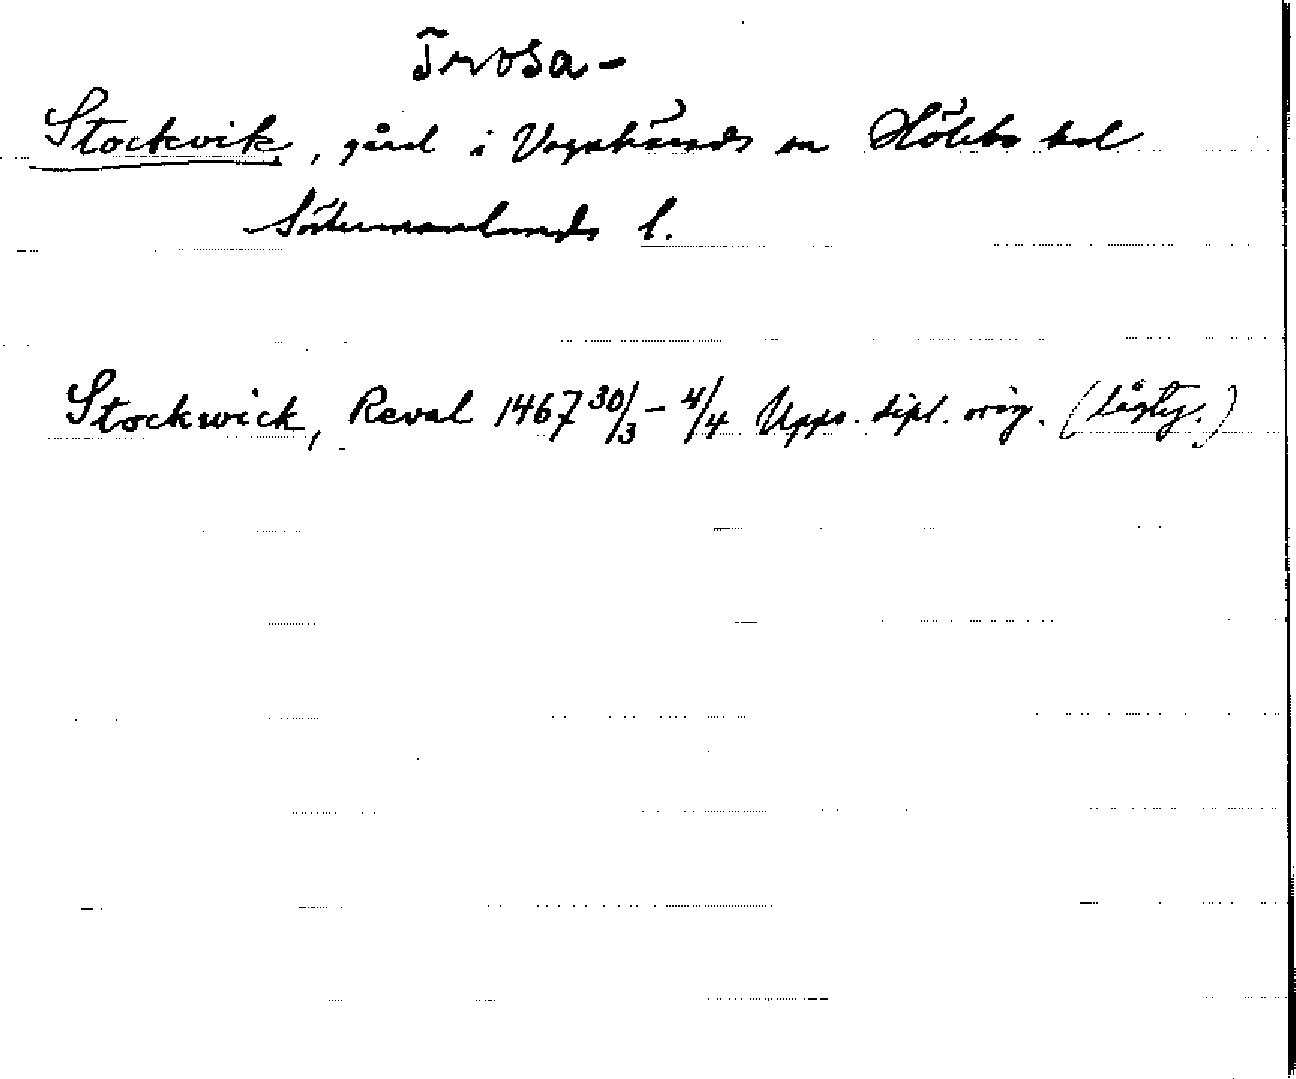 Trosa-
Stockvik, gård i Vagnhärads sn Hölebo hd
Södermanlands l.
Stockwick, Reval 1467 30/3 - 4/4 Upps. dipl. orig. (lågty.)